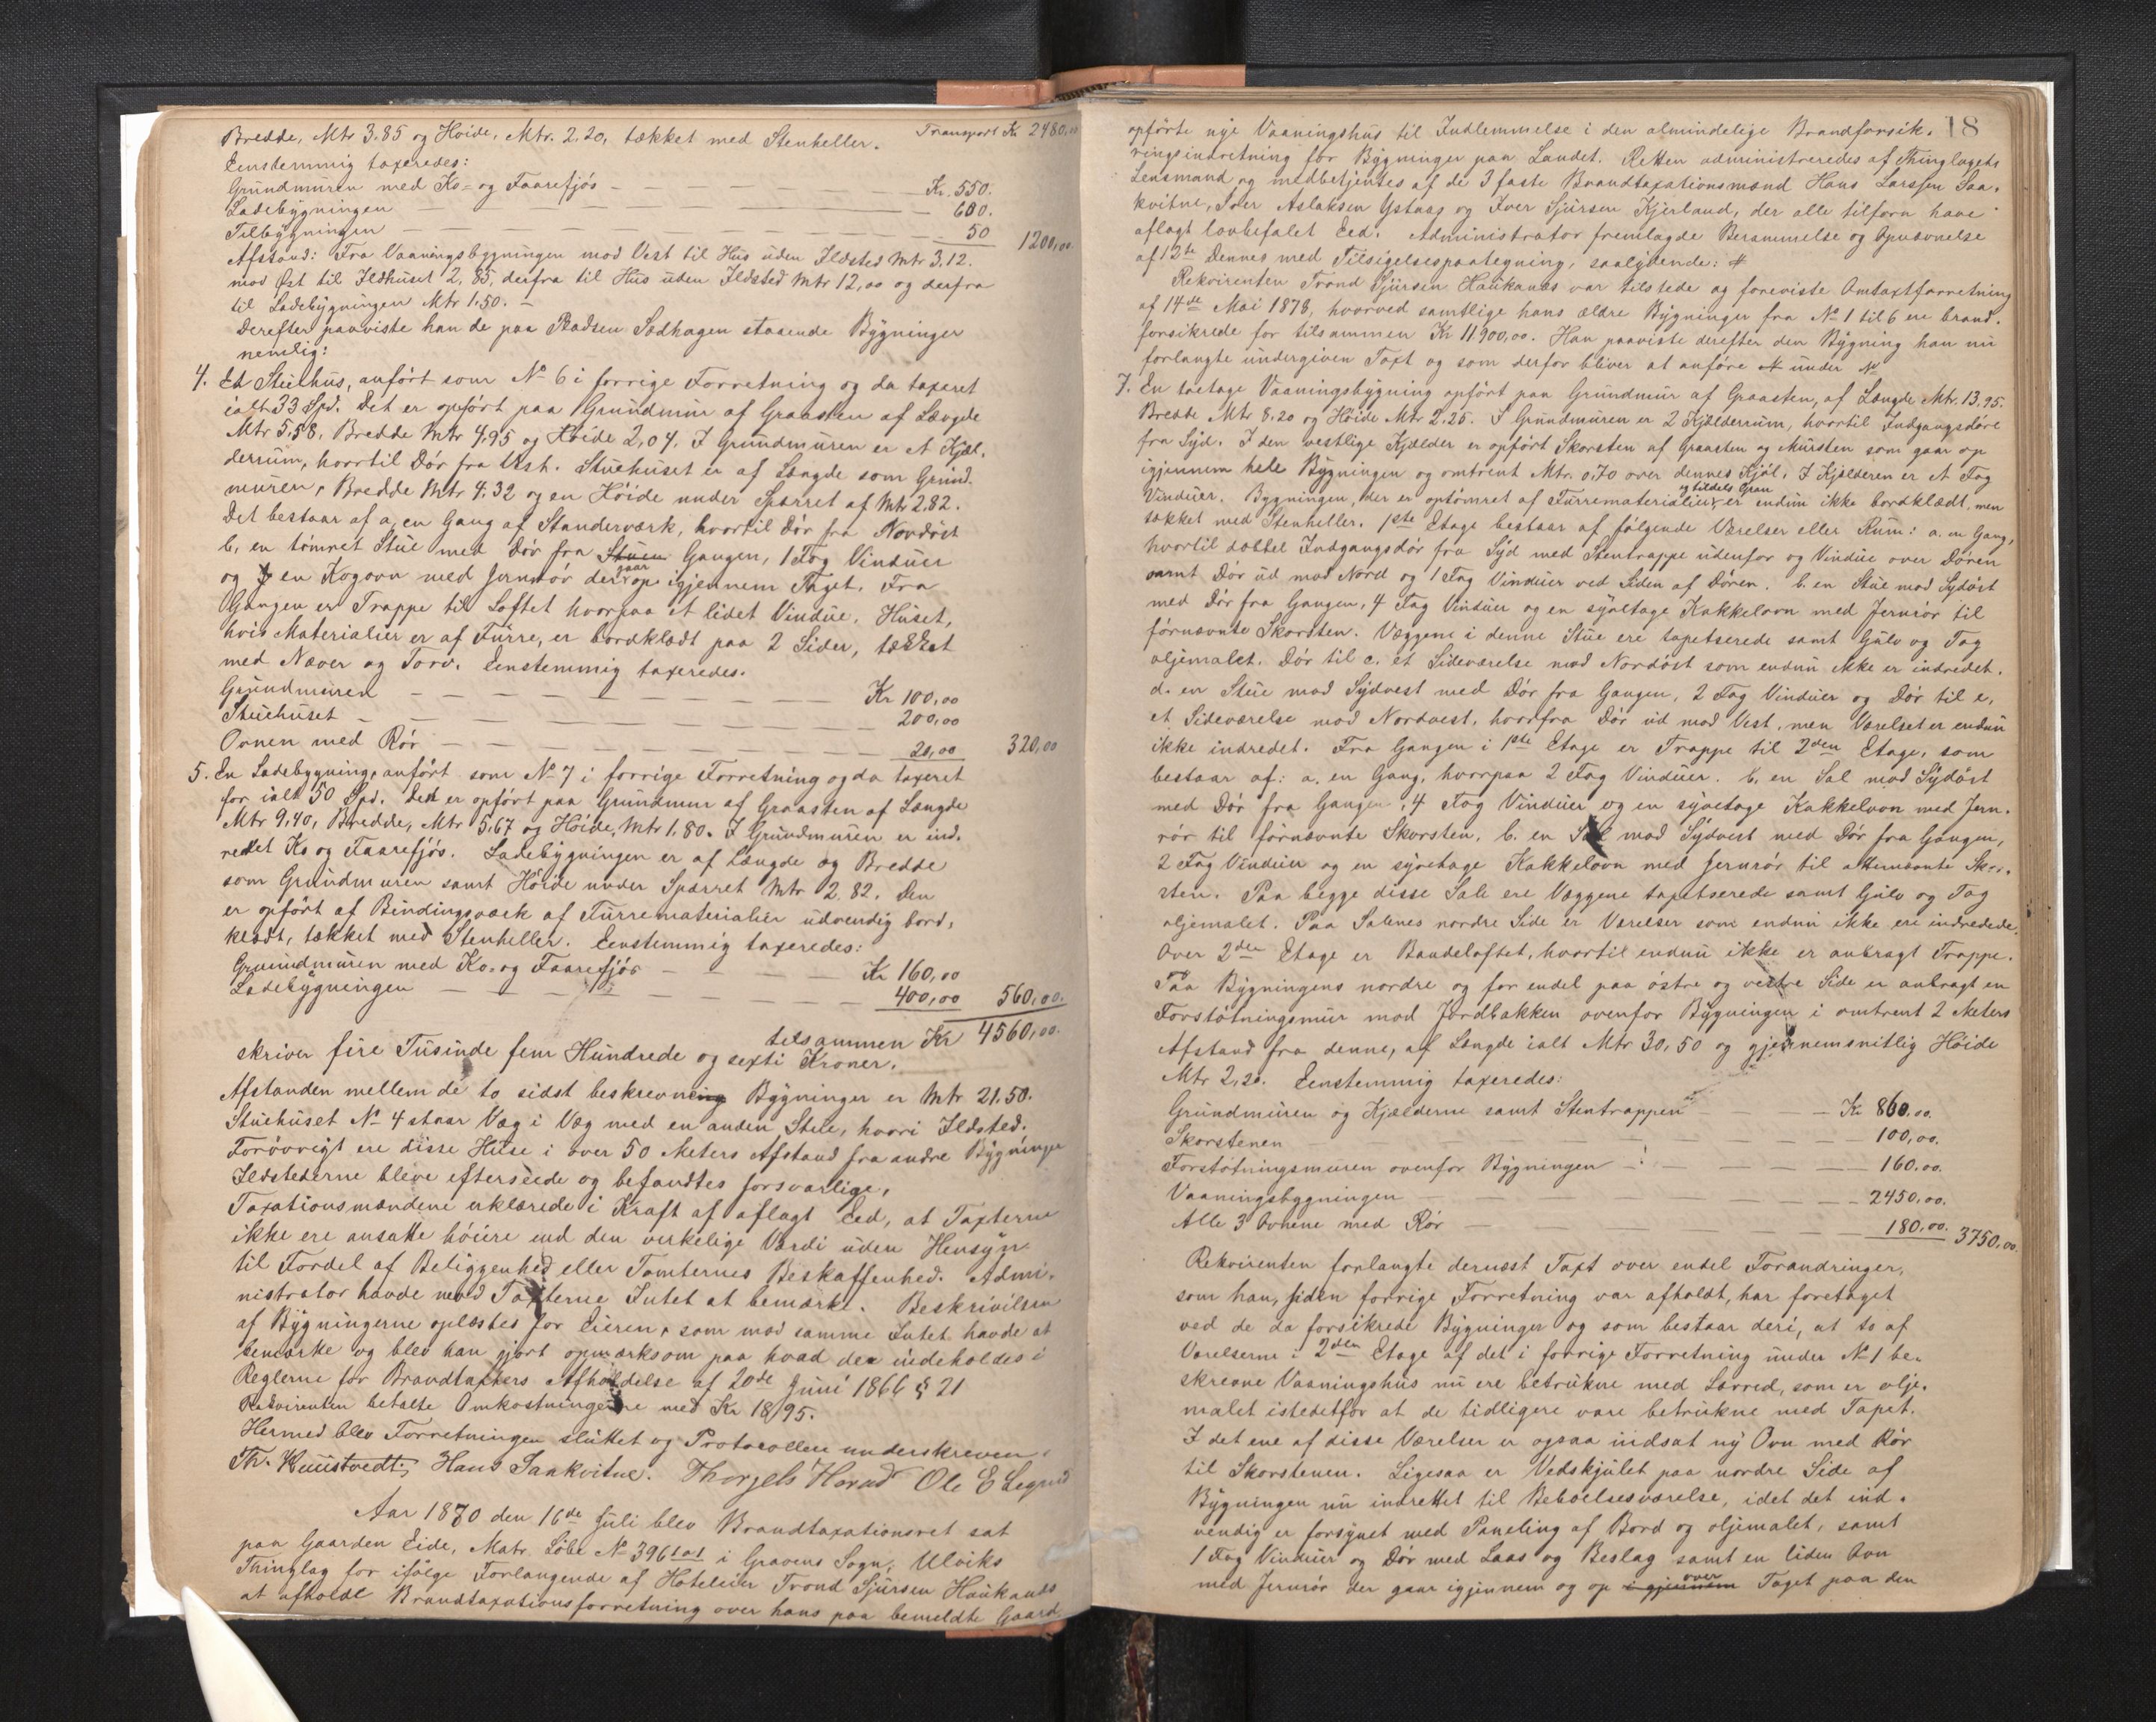 Bredde, Mtr 3.85 og Høide, Mtr. 2.20, tækket med Stenheller. Transport Kr 2480,00
Eenstemmig taxeredes:
Grundmuren med Ko- og Faarefjøs — Kr. 550.
Ladebygningen — 600.
Tilbygningen — 50 1200,00
Afstand: Fra Vaaningsbygningen mod Vest til Hus uden Ildsted Mtr 3,12.
mod Øst til Ildhuset 2,85, derfra til Hus uden Ildsted Mtr 12,00 og derfra
til Ladebygningen Mtr 1.50. —
Derefter paaviste han de paa Pladsen Sødhagen staaende Bygninger
nemlig:
4. Et Stuehus, anført som No 6 i forrige Forretning og da taxeret
ialt 33 Spd. Det er opført paa Grundmur af Graasten af Længde
Mtr 5,58, Bredde Mtr 4,95 og Høide 2,04. I Grundmuren er et Kjæl-
derrum, hvortil Dør fra Vest. Stuehuset er af Længde som Grund-
muren, Bredde Mtr 4.32 og en Høide under Sparret af Mtr 2.82.
Det bestaar af a, en Gang af Standerværk, hvortil Dør fra Nordøst
b, en tømret Stue med Dør fra Stuen Gangen, 1 Fag Vinduer
og en Kogovn med Jernrør der gaar op igjennem Taget. Fra
Gangen er Trappe til Loftet hvorpaa et lidet Vindue. Huset,
hvis Materialier er af Furre, er bordklædt paa 2 Sider, tækket
med Næver og Torv. Eenstemmig taxeredes.
Grundmuren — Kr 100,00
Stuehuset — 200,00
Ovnen med Rør — 20,00 320,00
5. En Ladebygning, anført som No 7 i forrige Forretning og da taxeret
for ialt 50 Spd. Det er opført paa Grundmur af Graasten af Længde
Mtr 9.40, Bredde, Mtr 5.67 og Høide, Mtr 1.80. I Grundmuren er ind-
redet Ko og Faarefjøs. Ladebygningen er af Længde og Bredde
som Grundmuren samt Høide under Sparret Mtr 2.82. Den
er opført af Bindingsværk af Furrematerialier udvendig bord-
klædt, tækket med Stenheller. Eenstemmig taxeredes:
Grundmuren med Ko- og Faarefjøs — Kr 160,00
Ladebygningen — 400,00 560,00.
tilsammen Kr 4560,00.
skriver fire Tusinde fem Hundrede og sexti Kroner.
Afstanden mellem de to sidst beskrevne Bygninger er Mtr 21.50.
Stuehuset No 4 staar Væg i Væg med en anden Stue, hvori Ildsted.
Forøvrigt ere disse Huse i over 50 Meters Afstand fra andre Bygninger
Ildstederne bleve efterseede og befandtes forsvarlige.
Taxationsmændene erklærede i Kraft af aflagt Eed, at Taxterne
ikke ere ansatte høiere end den virkelige Værdi uden Hensyn
til Fordel af Beliggenhed eller Tomternes Beskaffenhed. Admi-
nistrator havde mod Taxterne Intet at bemærke. Beskrivelsen
af Bygningerne oplæstes for Eieren, som mod samme Intet havde at
bemærke og blev han gjort opmærksom paa hvad der indeholdes i
Reglerne for Brandtaxters Afholdelse af 20de Juni 1866 § 21
Rekvirenten betalte Omkostningerne med Kr 18,95.
Hermed blev Forretningen sluttet og Protocollen underskreven.
Th. Kunstvedt. Hans Saakvitne. Thorgels Horad Ole E Legreid
Aar 1880 den 16de Juli blev Brandtaxationsret sat
paa Gaarden Eide, Matr. Løbe No 396 1a1 i Gravens Sogn, Ulviks
Thinglag for ifølge Forlangende af Hoteleier Trond Sjursen Haukanæs
at afholde Brandtaxationsforretning over hans paa bemeldte Gaard
18
opførte nye Vaaningshus til Indlemmelse i den almindelige Brandforsik-
ringsindretning for Bygninger paa Landet. Retten administreredes af Thinglagets
Lensmand og medbetjentes af de 3 faste Brandtaxationsmænd Hans Larssen Saa-
kvitne, Iver Aslaksen Ystaas og Iver Sjursen Kjerland, der alle tilforn have
aflagt lovbefalet Eed. Administrator fremlagde Berammelse og Opnævnelse
af 12te Dennes med Tilsigelsespaategning, saalydende: #
Rekvirenten Trond Sjursen Haukanæs var tilstede og foreviste Omtaxtforretning
af 14de Mai 1878, hvorved samtlige hans ældre Bygninger fra No 1 til 6 ere brand-
forsikrede for tilsammen Kr 11900,00. Han paaviste derefter den Bygning han nu
forlangte undergiven Taxt og som derfor bliver at anføre under No
7. En toetage Vaaningsbygning opført paa Grundmur af Graasten, af Længde Mtr. 13,95.
Bredde Mtr 8.20 og Høide Mtr 2,25. I Grundmuren er 2 Kjælderrum, hvortil Indgangsdøre
fra Syd. I den vestlige Kjælder er opført Skorsten af Graasten og Mursten som gaar op
igjennem hele Bygningen og omtrent Mtr. 0,70 over dennes Kjøl. I Kjælderen er et Fag
Vinduer. Bygningen, der er optømret af Furrematerialier og tildels Gran, er endnu ikke bordklædt, men
tækket med Stenheller. 1ste Etage bestaar af følgende Værelser eller Rum: a. en Gang,
hvortil dobbel Indgangsdør fra Syd med Stentrappe udenfor og Vindue over Døren
samt Dør ud mod Nord og 1 Fag Vinduer ved Siden af Døren. b. en Stue mod Sydøst
med Dør fra Gangen, 4 Fag Vinduer og en syvetage Kakkelovn med Jernrør til
førnævnte Skorsten. Væggene i denne Stue ere tapetserede samt Gulv og Tag
oljemalet. Dør til c. et Sideværelse mod Nordøst som endnu ikke er indredet.
d. en Stue mod Sydvest med Dør fra Gangen, 2 Fag Vinduer og Dør til e,
et Sideværelse mod Nordvest, hvorfra Dør ud mod Vest, men Værelset er endnu
ikke indredet. Fra Gangen i 1ste Etage er Trappe til 2den Etage, som
bestaar af: a. en Gang, hvorpaa 2 Fag Vinduer. b. en Sal mod Sydøst
med Dør fra Gangen, 4 Fag Vinduer og en syvetage Kakkelovn med Jern-
rør til førnævnte Skorsten. b. en Sal mod Sydvest med Dør fra Gangen,
2 Fag Vinduer og en syvetage Kakkelovn med Jernrør til ofternævnte Skor-
sten. Paa begge disse Sale ere Væggene tapetserede samt Gulv og Tag
oljemalet. Paa Salenes nordre Side er Værelser som endnu ikke ere indredede.
Over 2den Etage er Bandeloftet, hvortil endnu ikke er anbragt Trappe.
Paa Bygningens nordre og for endel paa østre og vestre Side er anbragt en
Forstøtningsmur mod Jordbakken ovenfor Bygningen i omtrent 2 Meters
Afstand fra denne, af Længde ialt Mtr 30,50 og gjennemsnitlig Høide
Mtr 2,20. Eenstemmig taxeredes:
Grundmuren og Kjælderne samt Stentrappen — Kr 860.00.
Skorstenen — 100,00.
Forstøtningsmuren ovenfor Bygningen — 160.00.
Vaaningsbygningen — 2450,00.
Alle 3 Ovnene med Rør — 180.00. 3750,00.
Rekvirenten forlangte dernæst Taxt over endel Forandringer,
som han, siden forrige Forretning var afholdt, har foretaget
ved de da forsikrede Bygninger og som bestaar deri, at to af
Værelserne i 2den Etage af det i forrige Forretning under No 1 be-
skrevne Vaaningshus nu ere betrukne med Lærred, som er olje-
malet istedetfor at de tidligere vare betrukne med Tapet.
I det ene af disse Værelser er ogsaa indsat ny Ovn med Rør
til Skorstenen. Ligesaa er Vedskjulet paa nordre Side af
Bygningen nu indrettet til Beboelsesværelse, idet det ind-
vendig er forsynet med Paneling af Bord og oljemalet, samt
1 Fag Vinduer og Dør med Laas og Beslag samt en liden Ovn
med Jernrør der gaar igjennem og op igjennem over Taget paa den